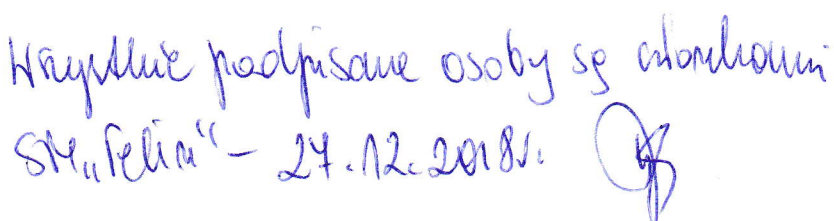 Wszystkie podpisane osoby są członkami
SM „Felin" – 27.12.2018r.